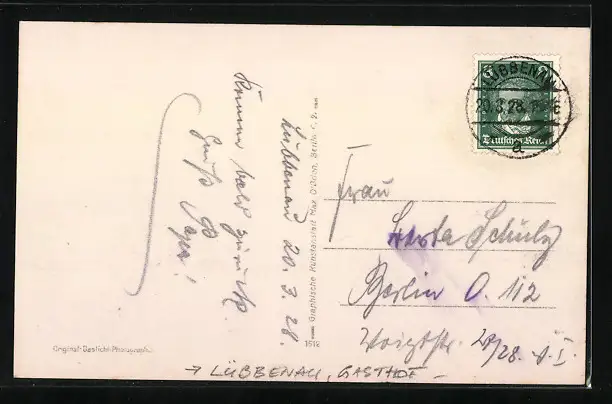 Lübbenau 20.3.28.
Kommen bald zurück.
Gruß Papa!
Original-Gesticht-Photograph.
1512
Graphische Kunstanstalt Max O'Brien, Berlin
LÜBBENAU
20.3.28.
a
Deutsches Reich
Frau
Herta Schulz
Berlin O. 112
Voigtstr. 27/28. v. I.
→ LÜBBENAU, GASTHOF –